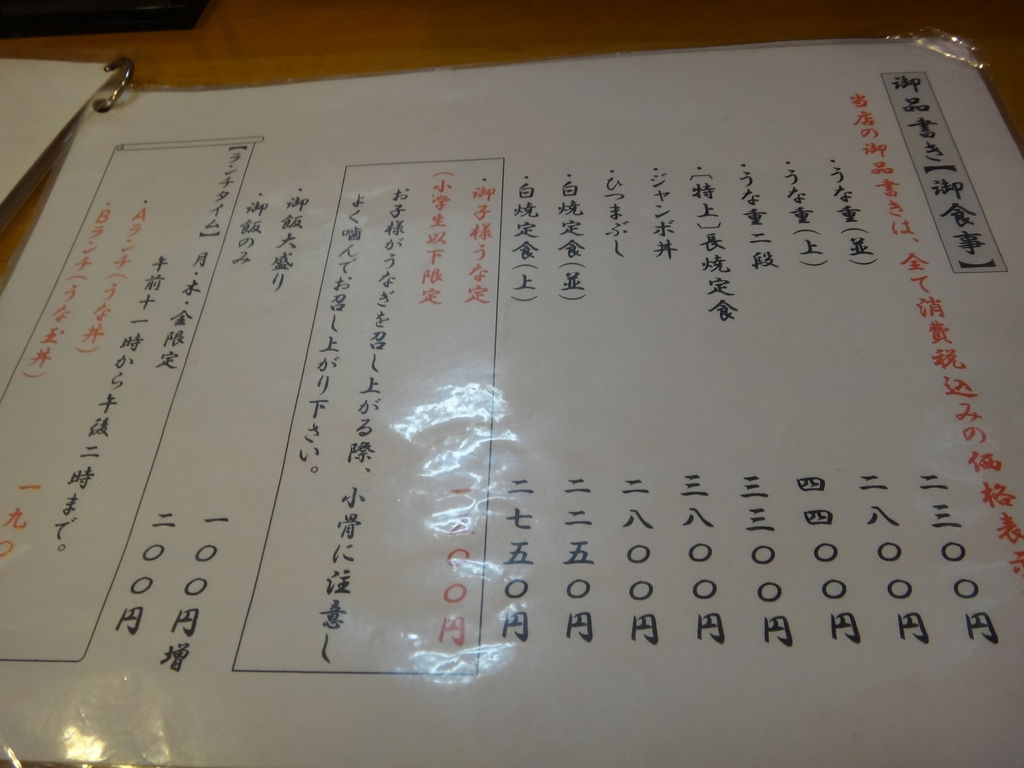 御品書き【御食事】
当店の御品書きは、全て消費税込みの価格表示
・うな重(並) 二三〇〇円
・うな重(上) 二八〇〇円
・うな重二段 四四〇〇円
・〔特上〕長焼定食 三三〇〇円
・ジャンボ丼 三八〇〇円
・ひつまぶし 二八〇〇円
・白焼定食(並) 二二五〇円
・白焼定食(上) 二七五〇円
・御子様うな定
(小学生以下限定) 〇〇円
お子様がうなぎを召し上がる際、小骨に注意し
よく噛んでお召し上がり下さい。
・御飯大盛り 一〇〇円増
・御飯のみ 二〇〇円
【ランチタイム】月・木・金限定
午前十一時から午後二時まで。
・Aランチ(うな丼)
・Bランチ(うな玉丼) 一九〇